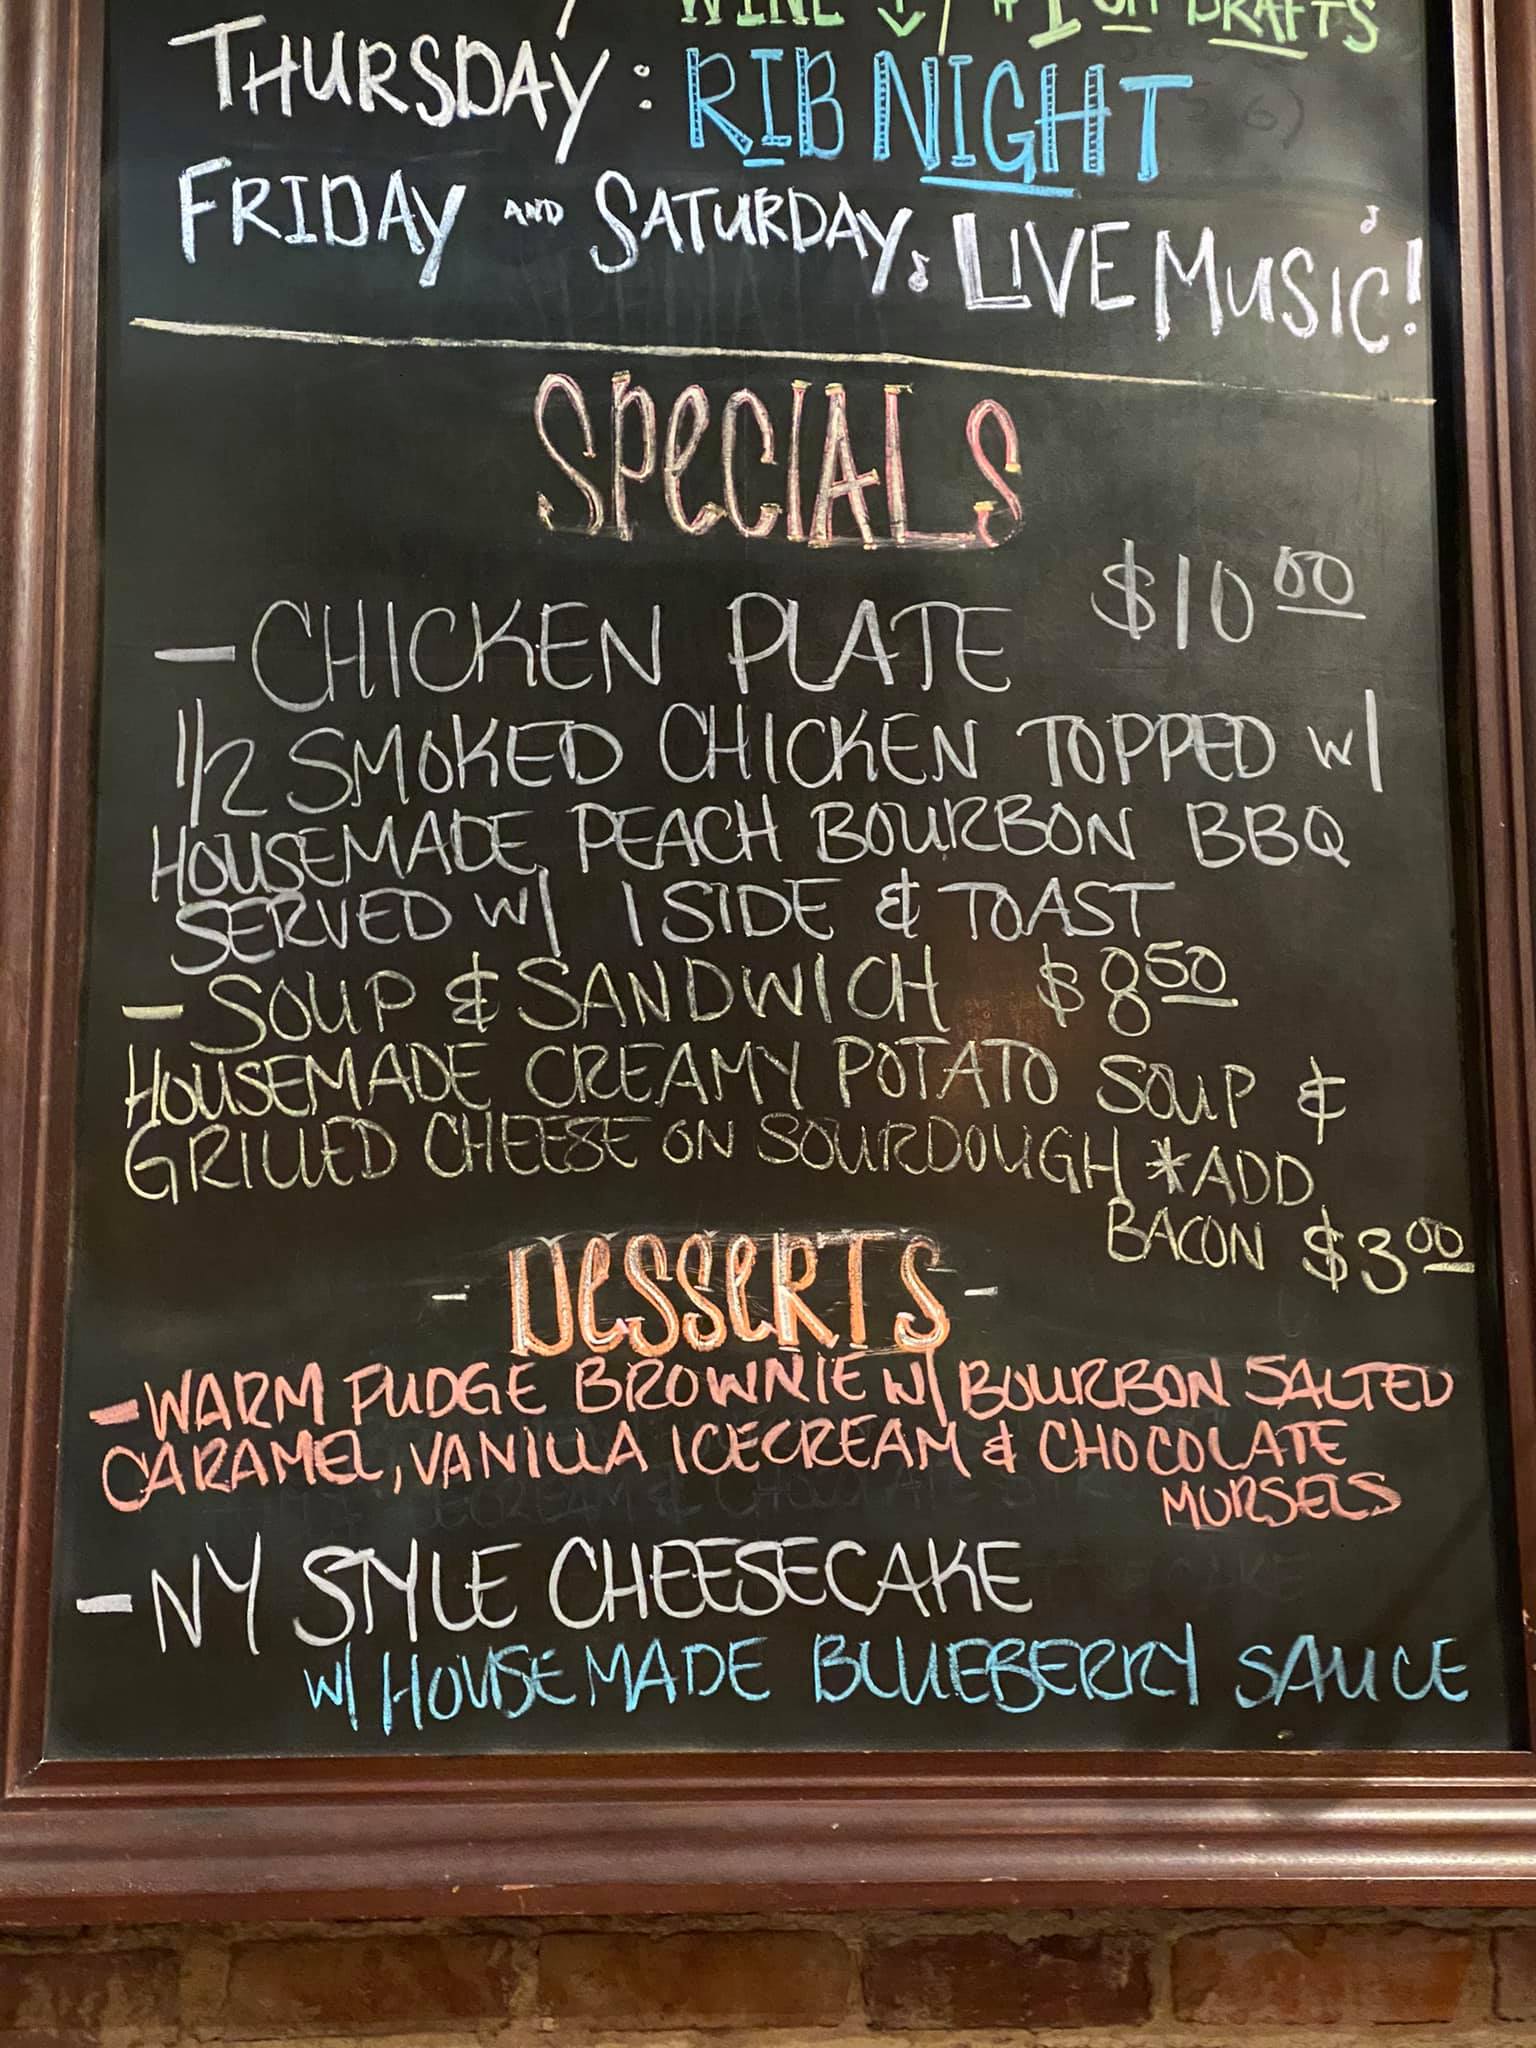 WINE $1 Off DRAFTS
THURSDAY: RIB NIGHT
FRIDAY AND SATURDAY: LIVE MUSIC!
SPeCIALS
- CHICKEN PLATE $10.00
1/2 SMOKED CHICKEN TOPPED w/
HOUSEMADE PEACH BOURBON BBQ
SERVED W/ 1 SIDE & TOAST
- SOUP & SANDWICH $8.50
HOUSEMADE CREAMY POTATO SOUP &
GRILLED CHEESE ON SOURDOUGH *ADD
BACON $3.00
- DeSSeRTS -
- WARM FUDGE BROWNIE W/ BOURBON SALTED
CARAMEL, VANILLA ICECREAM & CHOCOLATE
MORSELS
- NY STYLE CHEESECAKE
W/ HOUSEMADE BLUEBERRY SAUCE